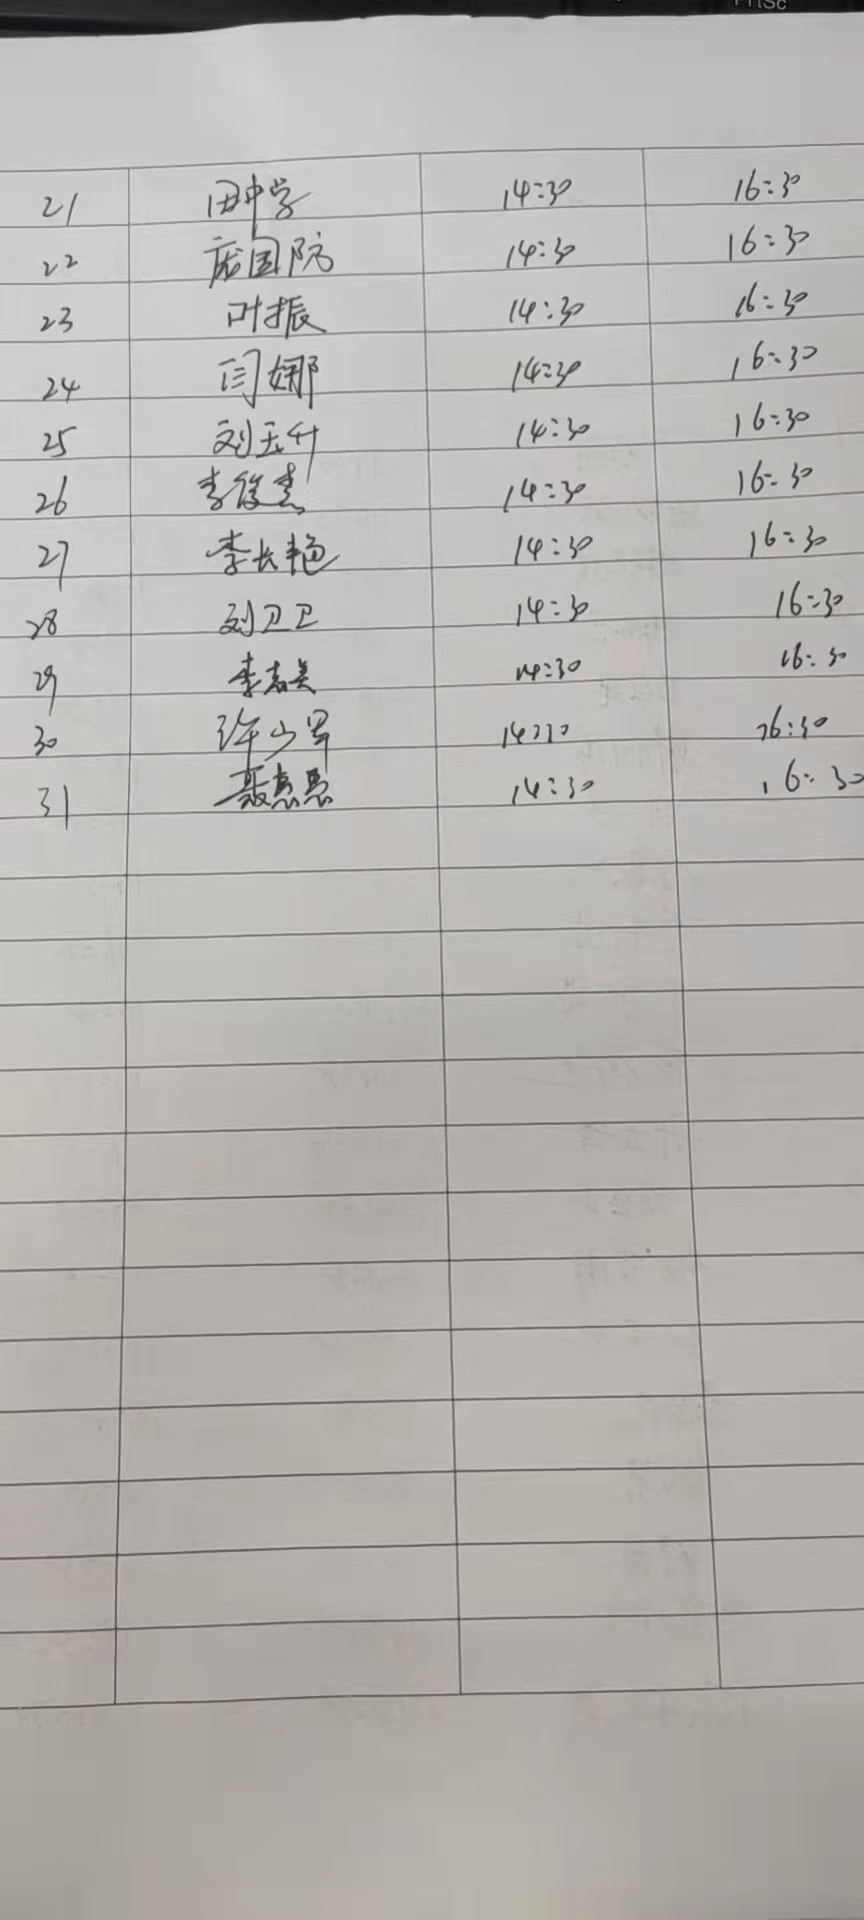 21 田中学 14:30 16:30
22 庞国防 14:30 16:30
23 叶振 14:30 16:30
24 闫娜 14:30 16:30
25 刘玉升 14:30 16:30
26 李俊杰 14:30 16:30
27 李长艳 14:30 16:30
28 刘卫卫 14:30 16:30
29 李志美 14:30 16:30
30 许少军 14:30 16:30
31 聂惠惠 14:30 16:30